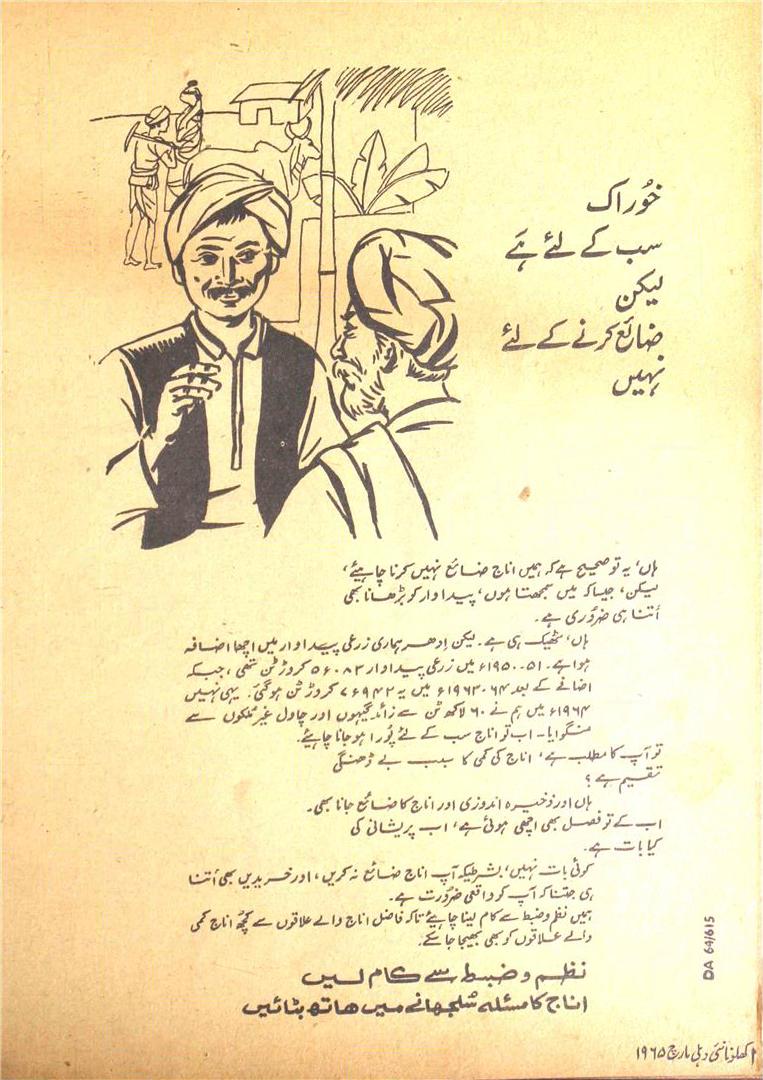 خوُراک
سب کے لئے ہَے
لیکن
ضائع کرنے کے لئے
نہیں
ہاں، یہ تو صحیح ہے کہ ہمیں اناج ضائع نہیں کرنا چاہیئے،
لیکن، جیسا کہ میں سمجھتا ہوں، پیداوار کو بڑھانا بھی
اُتنا ہی ضروُری ہے۔
ہاں، ٹھیک ہی ہے۔ لیکن اِدھر ہماری زرعی پیداوار میں اچھا اضافہ
ہوا ہے۔ ۵۱-۱۹۵۰ء میں زرعی پیداوار ۵۶۰۸۳ کروڑ ٹن تھی، جبکہ
اضافے کے بعد ۶۴-۱۹۶۳ء میں یہ ۷۶۹۴۲ کروڑ ٹن ہوگئی۔ یہی نہیں
۱۹۶۴ء میں ہم نے ۶۰ لاکھ ٹن سے زائد گیہوں اور چاول غیر مُلکوں سے
منگوایا۔ اب تو اناج سب کے لئے پوُرا ہو جانا چاہیئے۔
تو آپ کا مطلب ہے، اناج کی کمی کا سبب بے ڈھنگی
تقسیم ہے؟
ہاں اور ذخیرہ اندوزی اور اناج کا ضائع جانا بھی۔
اب کے تو فصل بھی اچھی ہوئی ہے، اب پریشانی کی
کیا بات ہے۔
کوئی بات نہیں، بشرطیکہ آپ اناج ضائع نہ کریں، اور خریدیں بھی اُتنا
ہی جتنا کہ آپ کو واقعی ضرُورت ہے۔
ہمیں نظم و ضبط سے کام لینا چاہیئے تاکہ فاضل اناج والے علاقوں سے کچھُ اناج کمی
والے علاقوں کو بھی بھیجا جاسکے۔
نظم و ضبط سے کام لیں
اناج کا مسئلہ سُلجھانے میں ہاتھ بٹائیں
DA 64/615
کھلونا نئی دہلی مارچ ۱۹۶۵